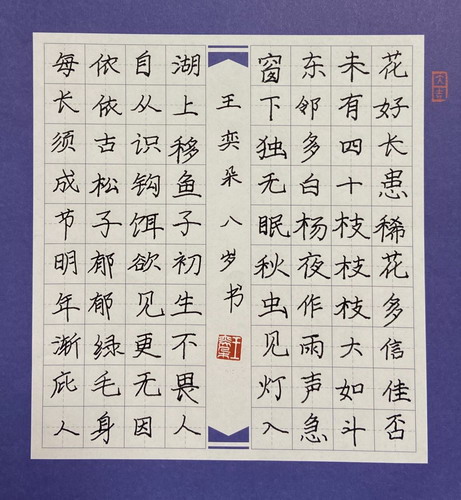 大吉
花好长患稀花多信佳否
未有四十枝枝枝大如斗
东邻多白杨夜作雨声急
窗下独无眠秋虫见灯入
王奕朵八岁书
湖上移鱼子初生不畏人
自从识钩饵欲见更无因
依依古松子郁郁绿毛身
每长须成节明年渐庇人